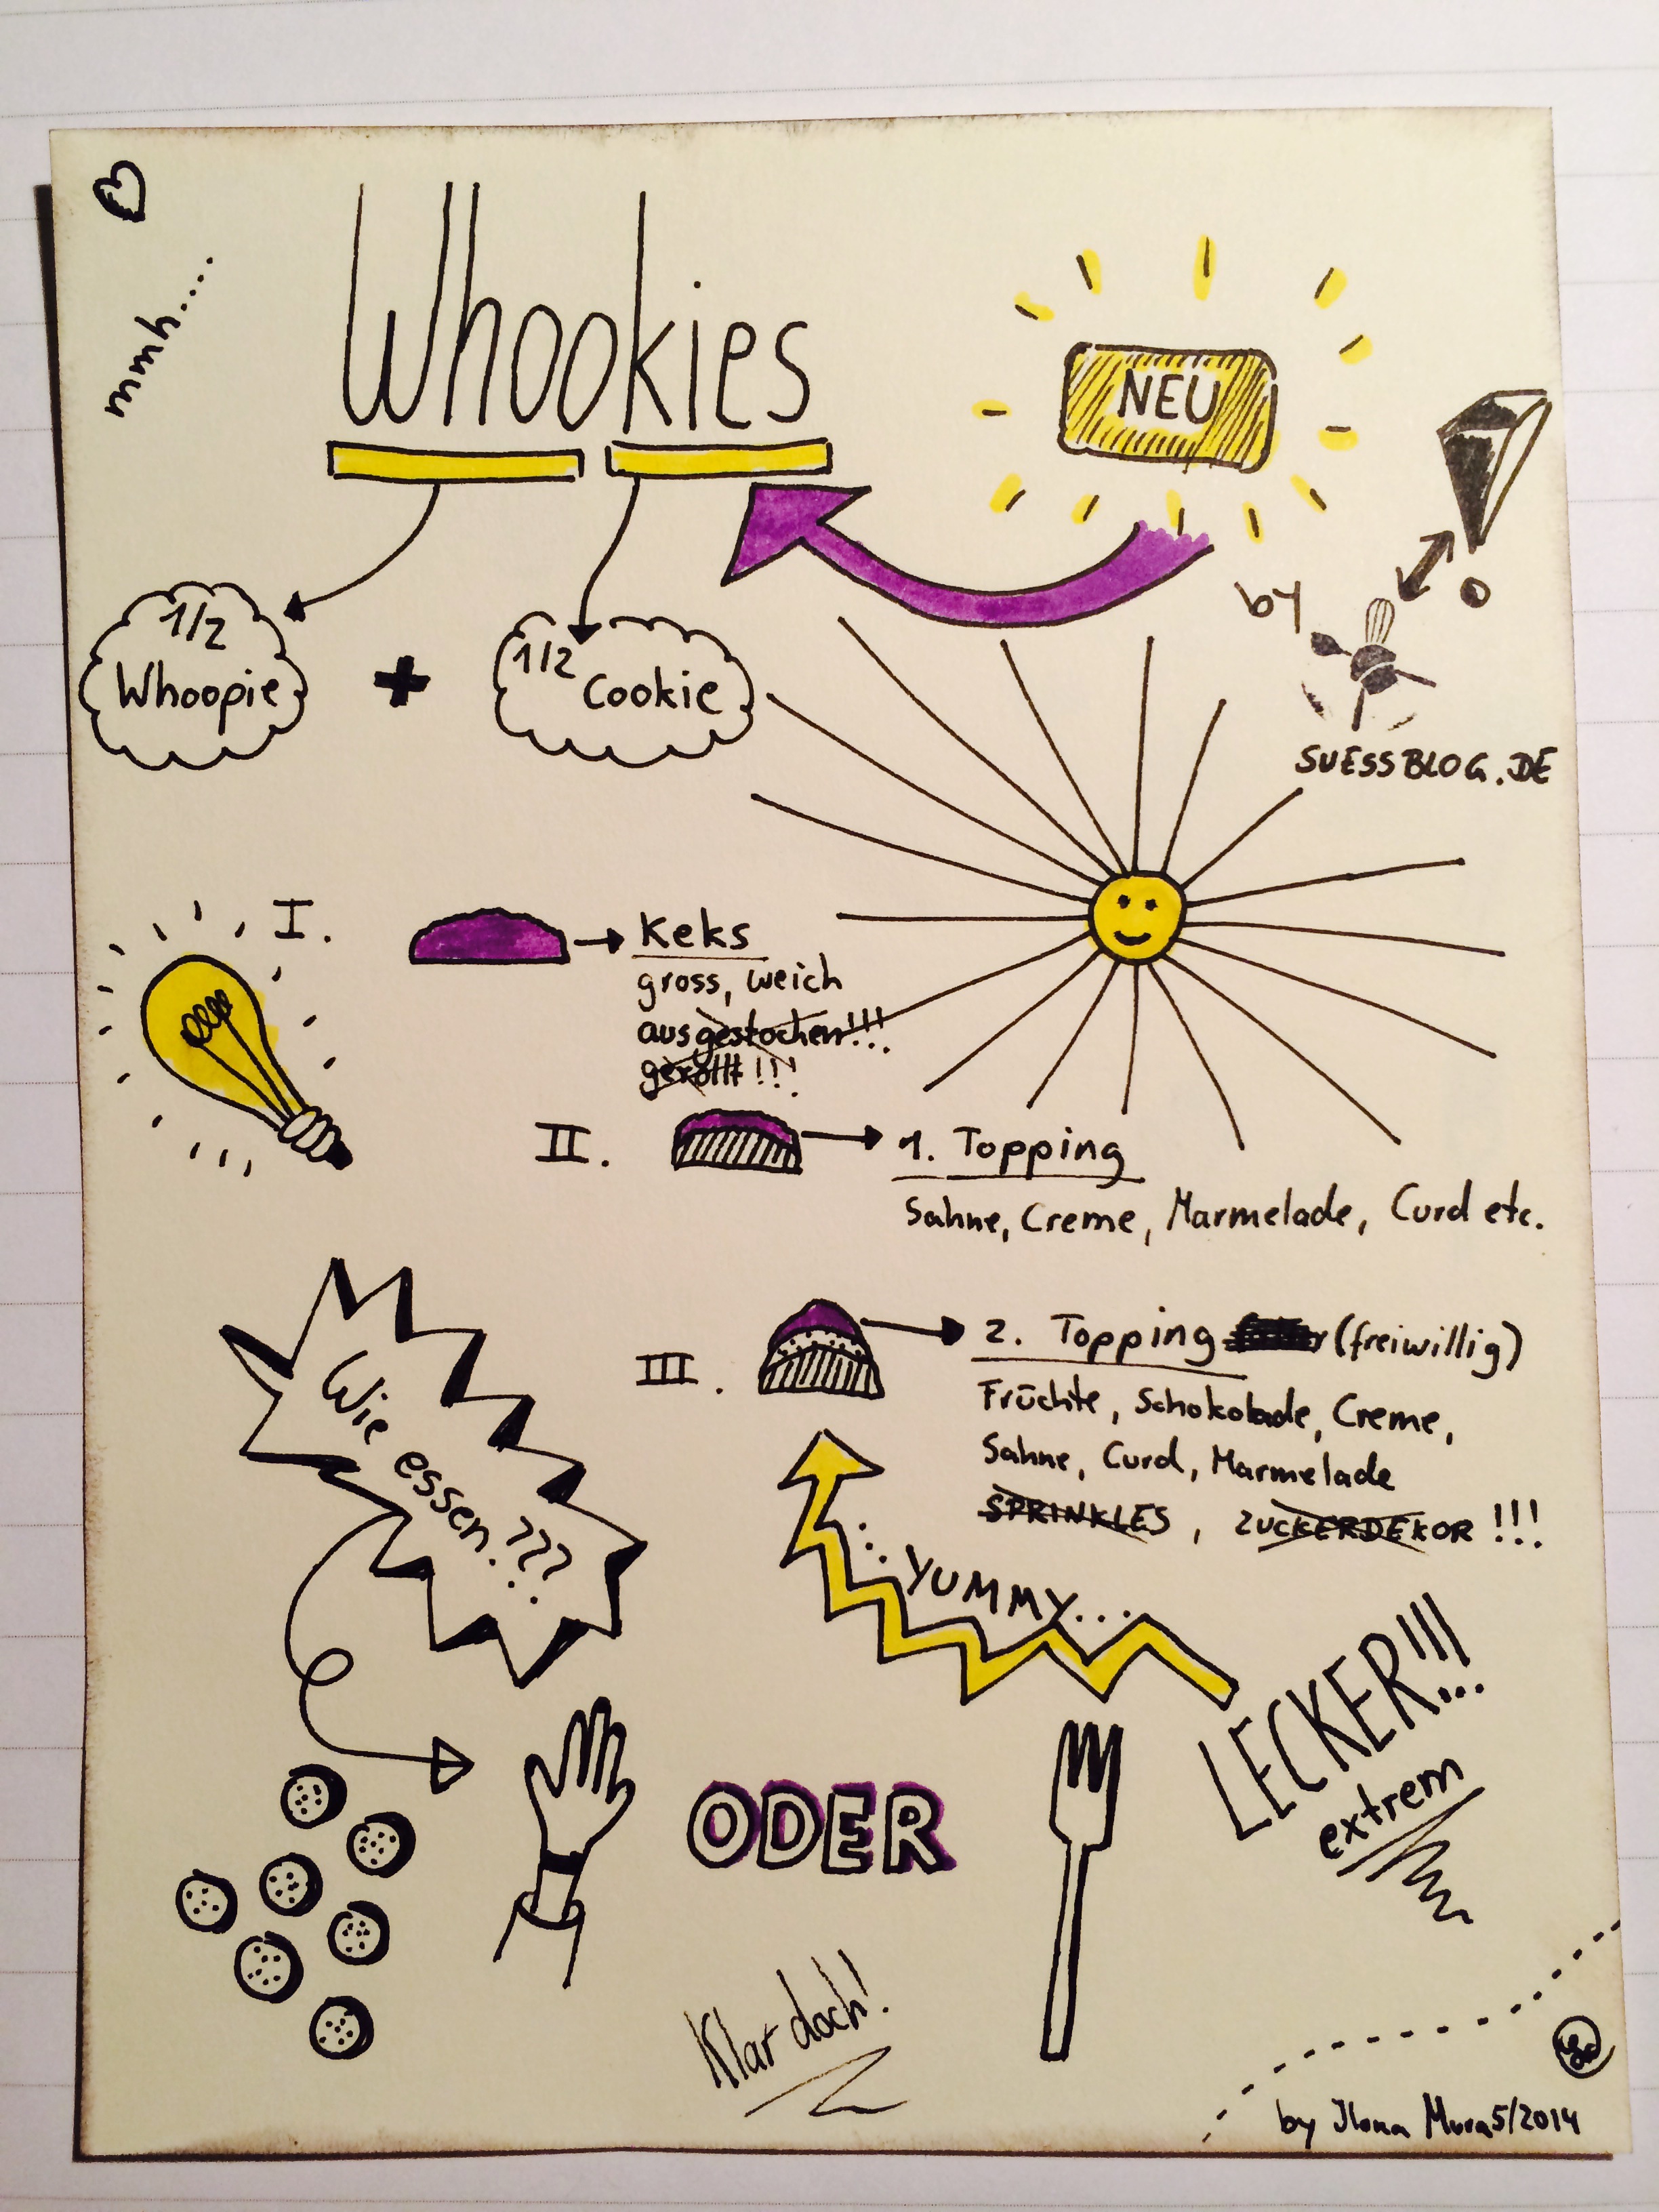 mmh....
Whookies
NEU
by
SUESSBLOG.DE
1/2
Whoopie
+
1/2
Cookie
I.
Keks
gross, weich
ausgestochen!!!
gerollt!!!
II.
1. Topping
Sahne, Creme, Marmelade, Curd etc.
III.
2. Topping (freiwillig)
Früchte, Schokolade, Creme,
Sahne, Curd, Marmelade
SPRINKLES, ZUCKERDEKOR !!!
Wie essen???
...YUMMY...
LECKER!!!
extrem
ODER
Klar doch!
by Ilona Mura 5/2014